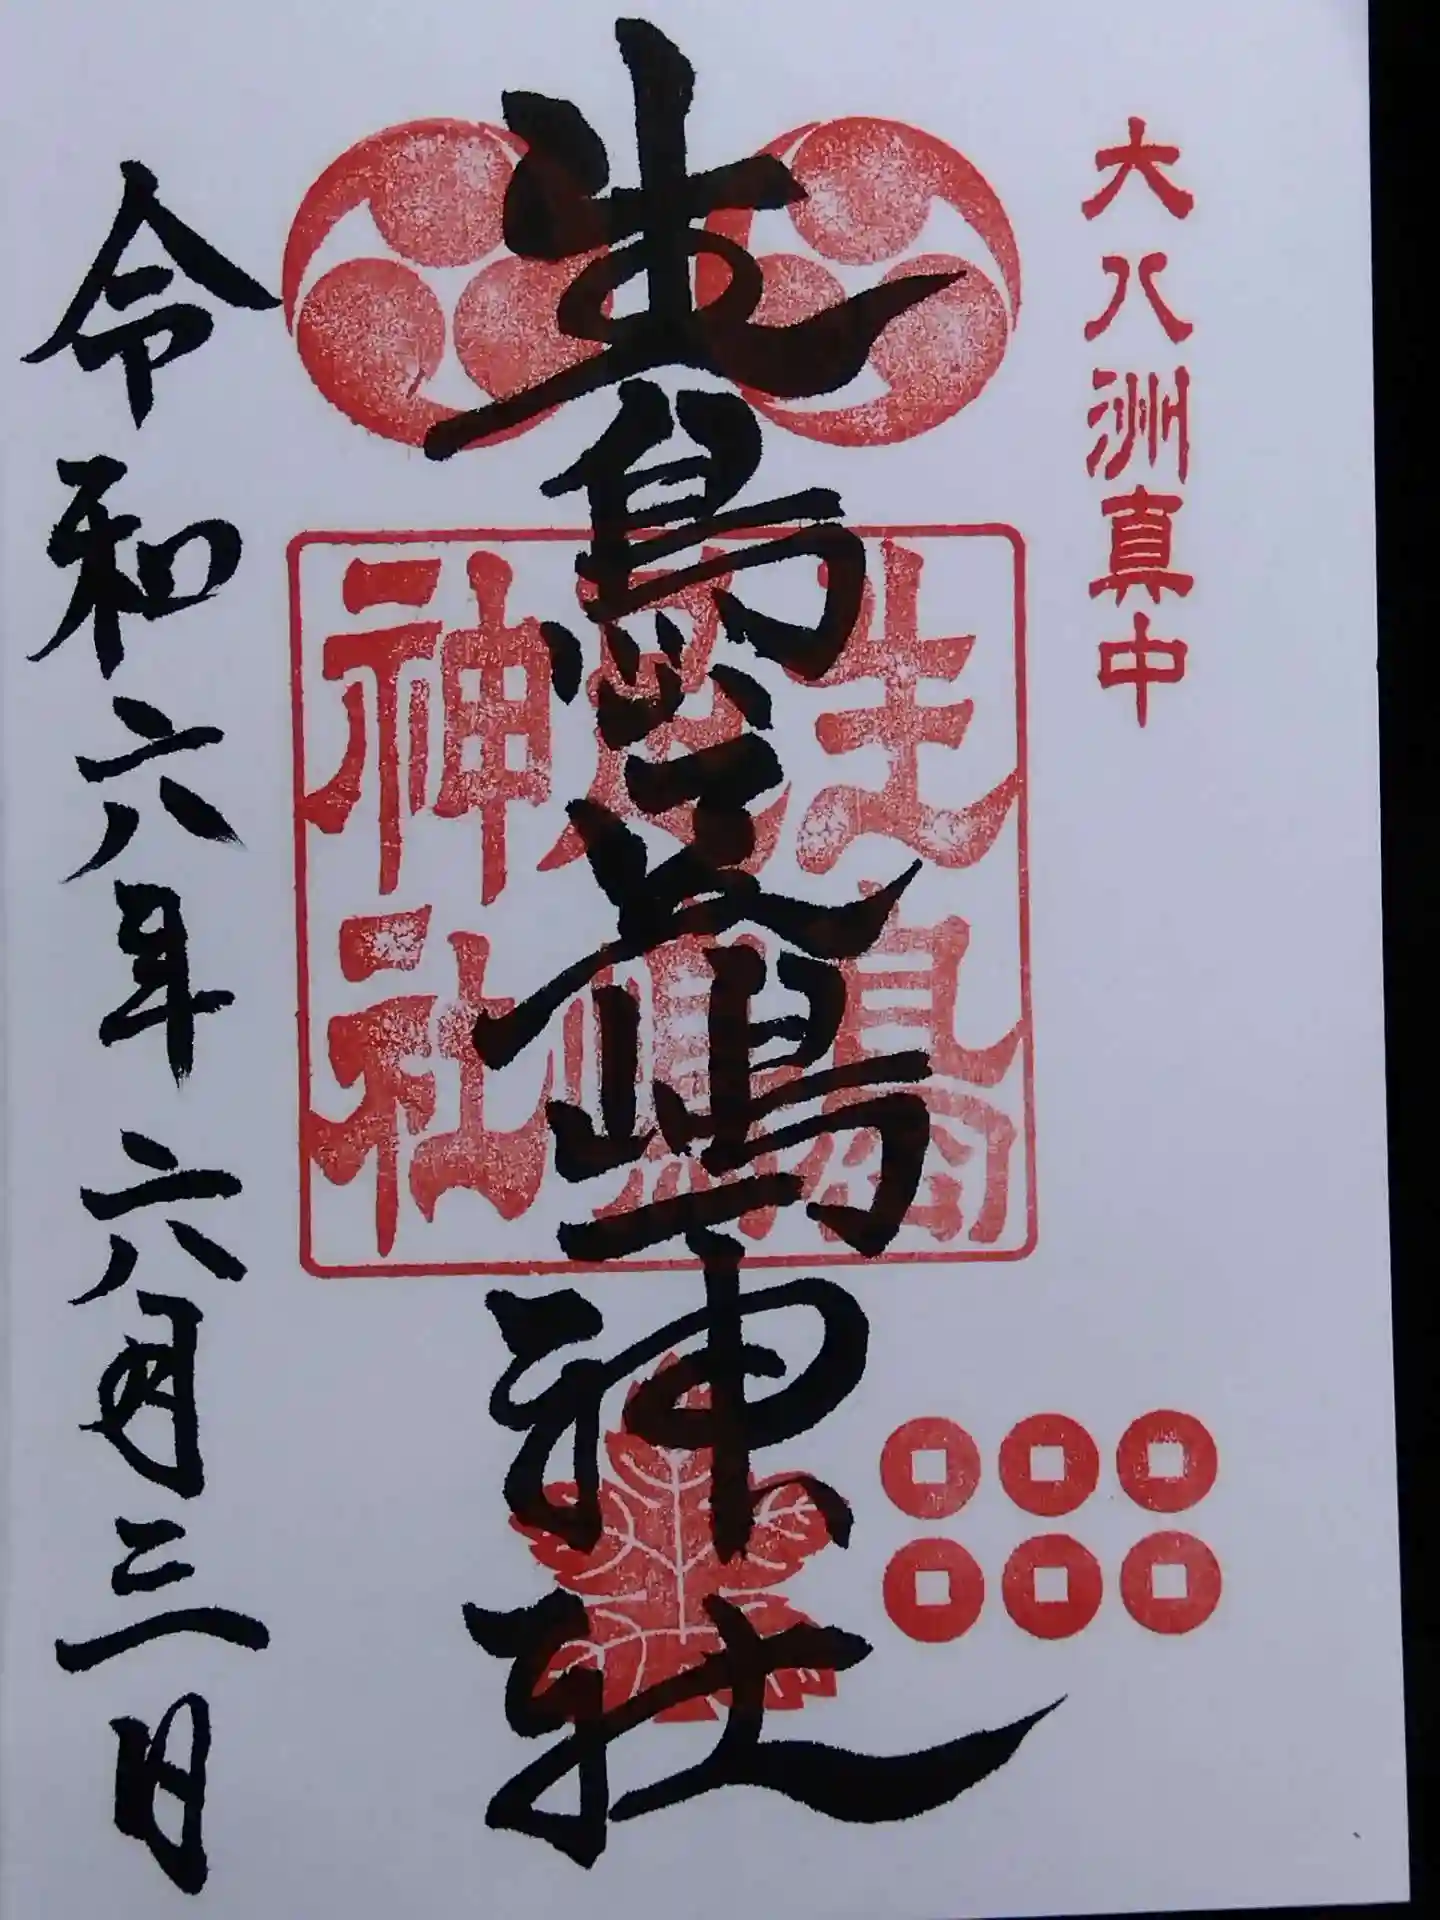 大八洲真中
生島足嶋神社
生島
足嶋
神社
令和六年六月三日